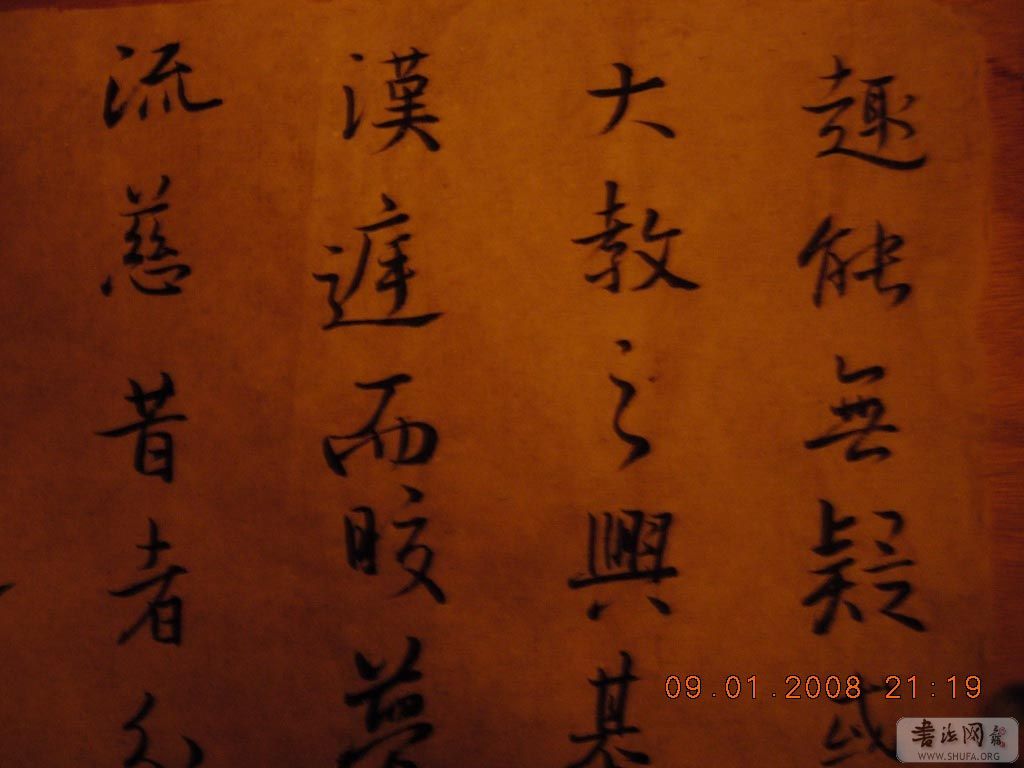 趣能無疑或
大教之興基
漢庭而皎夢
流慈昔者分
09.01.2008 21:19
書法网
WWW.SHUFA.ORG